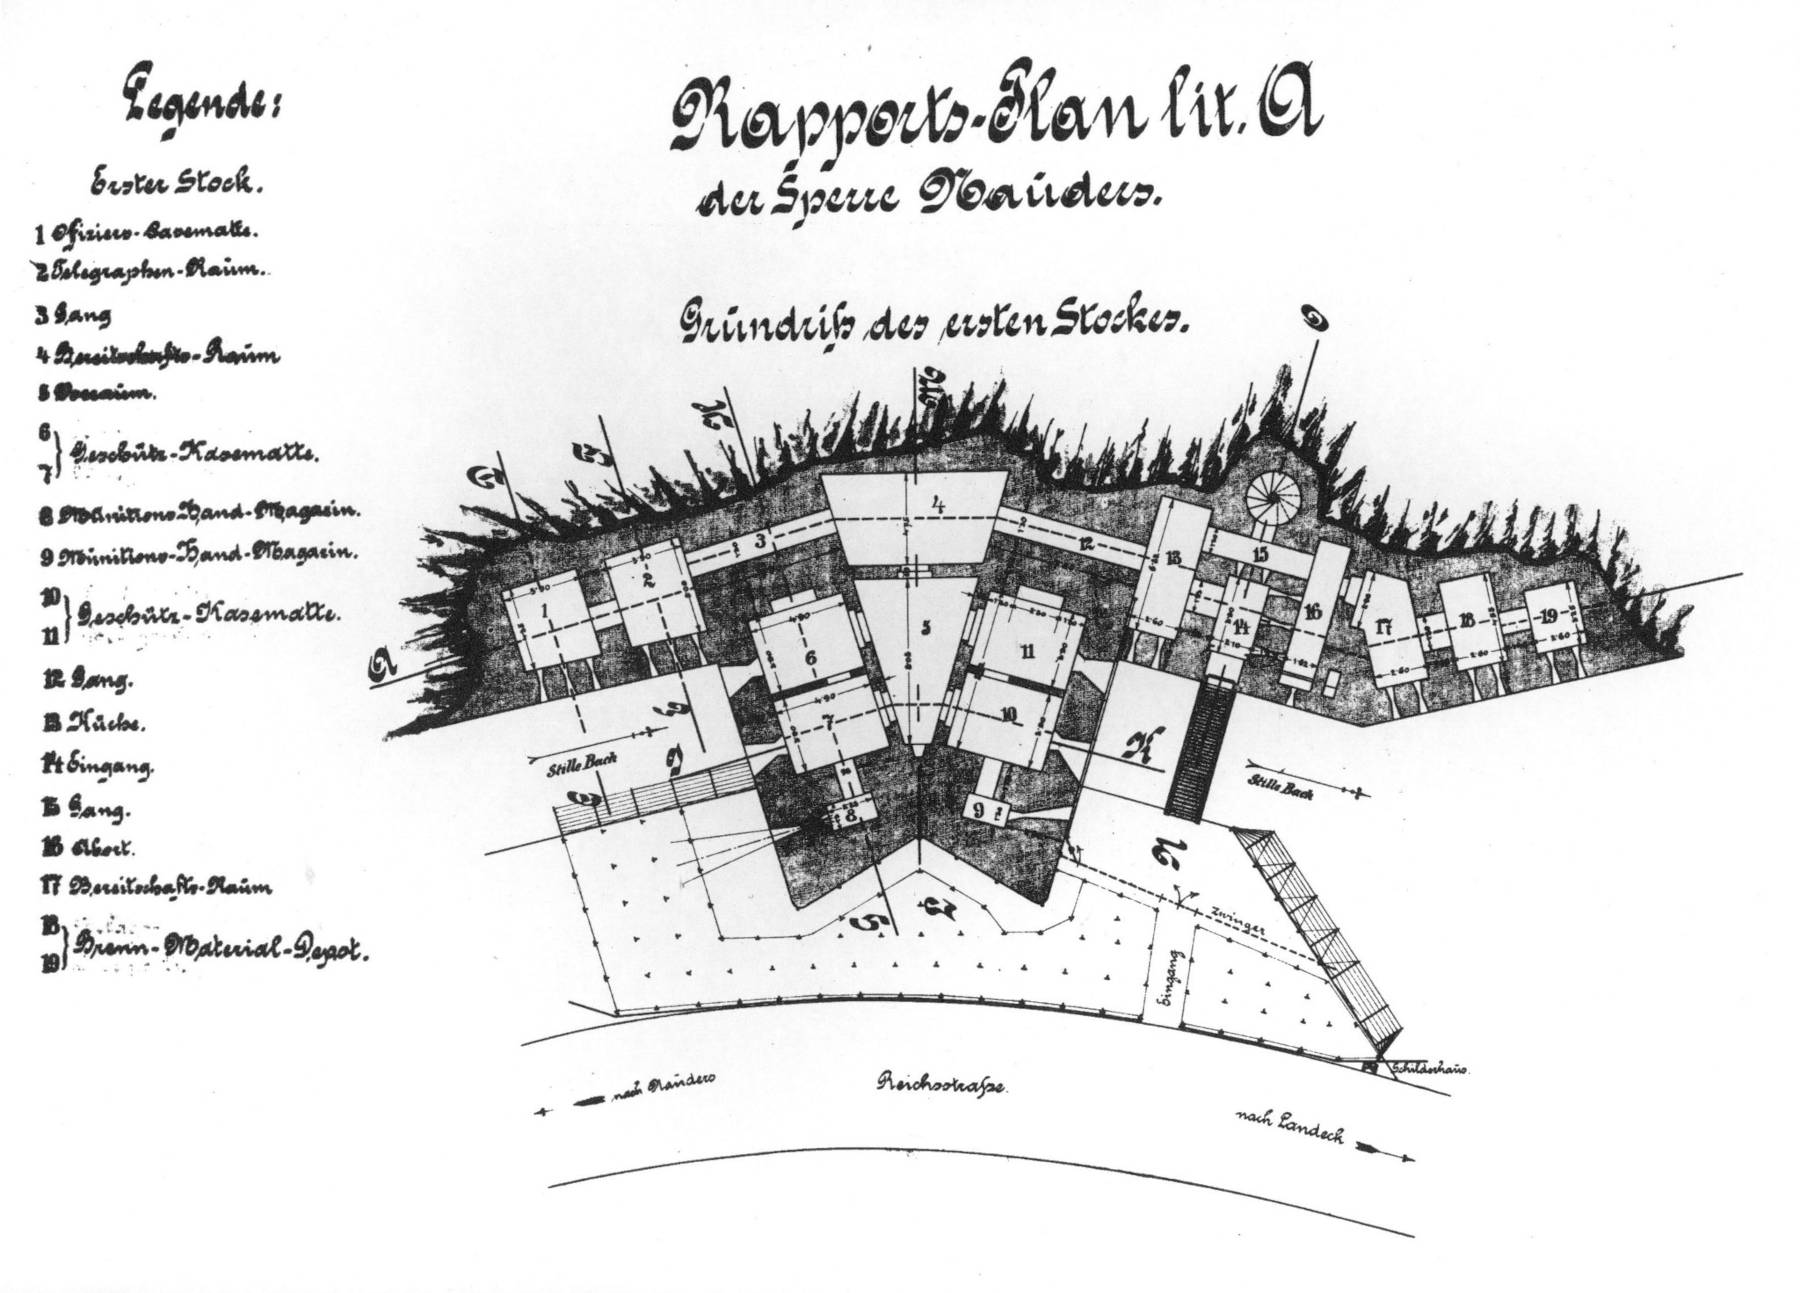 Legende:
Erster Stock.
1 Offiziers-Casematte.
2 Telegraphen-Raum.
3 Gang
4 Bereitschafts-Raum
5 Vorraum.
6
7 } Geschütz-Kasematte.
8 Munitions-Hand-Magazin.
9 Munitions-Hand-Magazin.
10
11 } Geschütz-Kasematte.
12 Gang.
13 Küche.
14 Eingang.
15 Gang.
16 Abort.
17 Bereitschafts-Raum
18
19 } Brenn-Material-Depot.
Rapports-Plan lit. A
der Sperre Nauders.
Grundriß des ersten Stockes.
M
A
1
2
3
4
5
6
7
8
9
10
11
12
13
14
15
16
17
18
19
Stille Bach
Stille Bach
K
N
Zwinger
Eingang
Schilderhaus.
nach Nauders
Reichsstraße.
nach Landeck